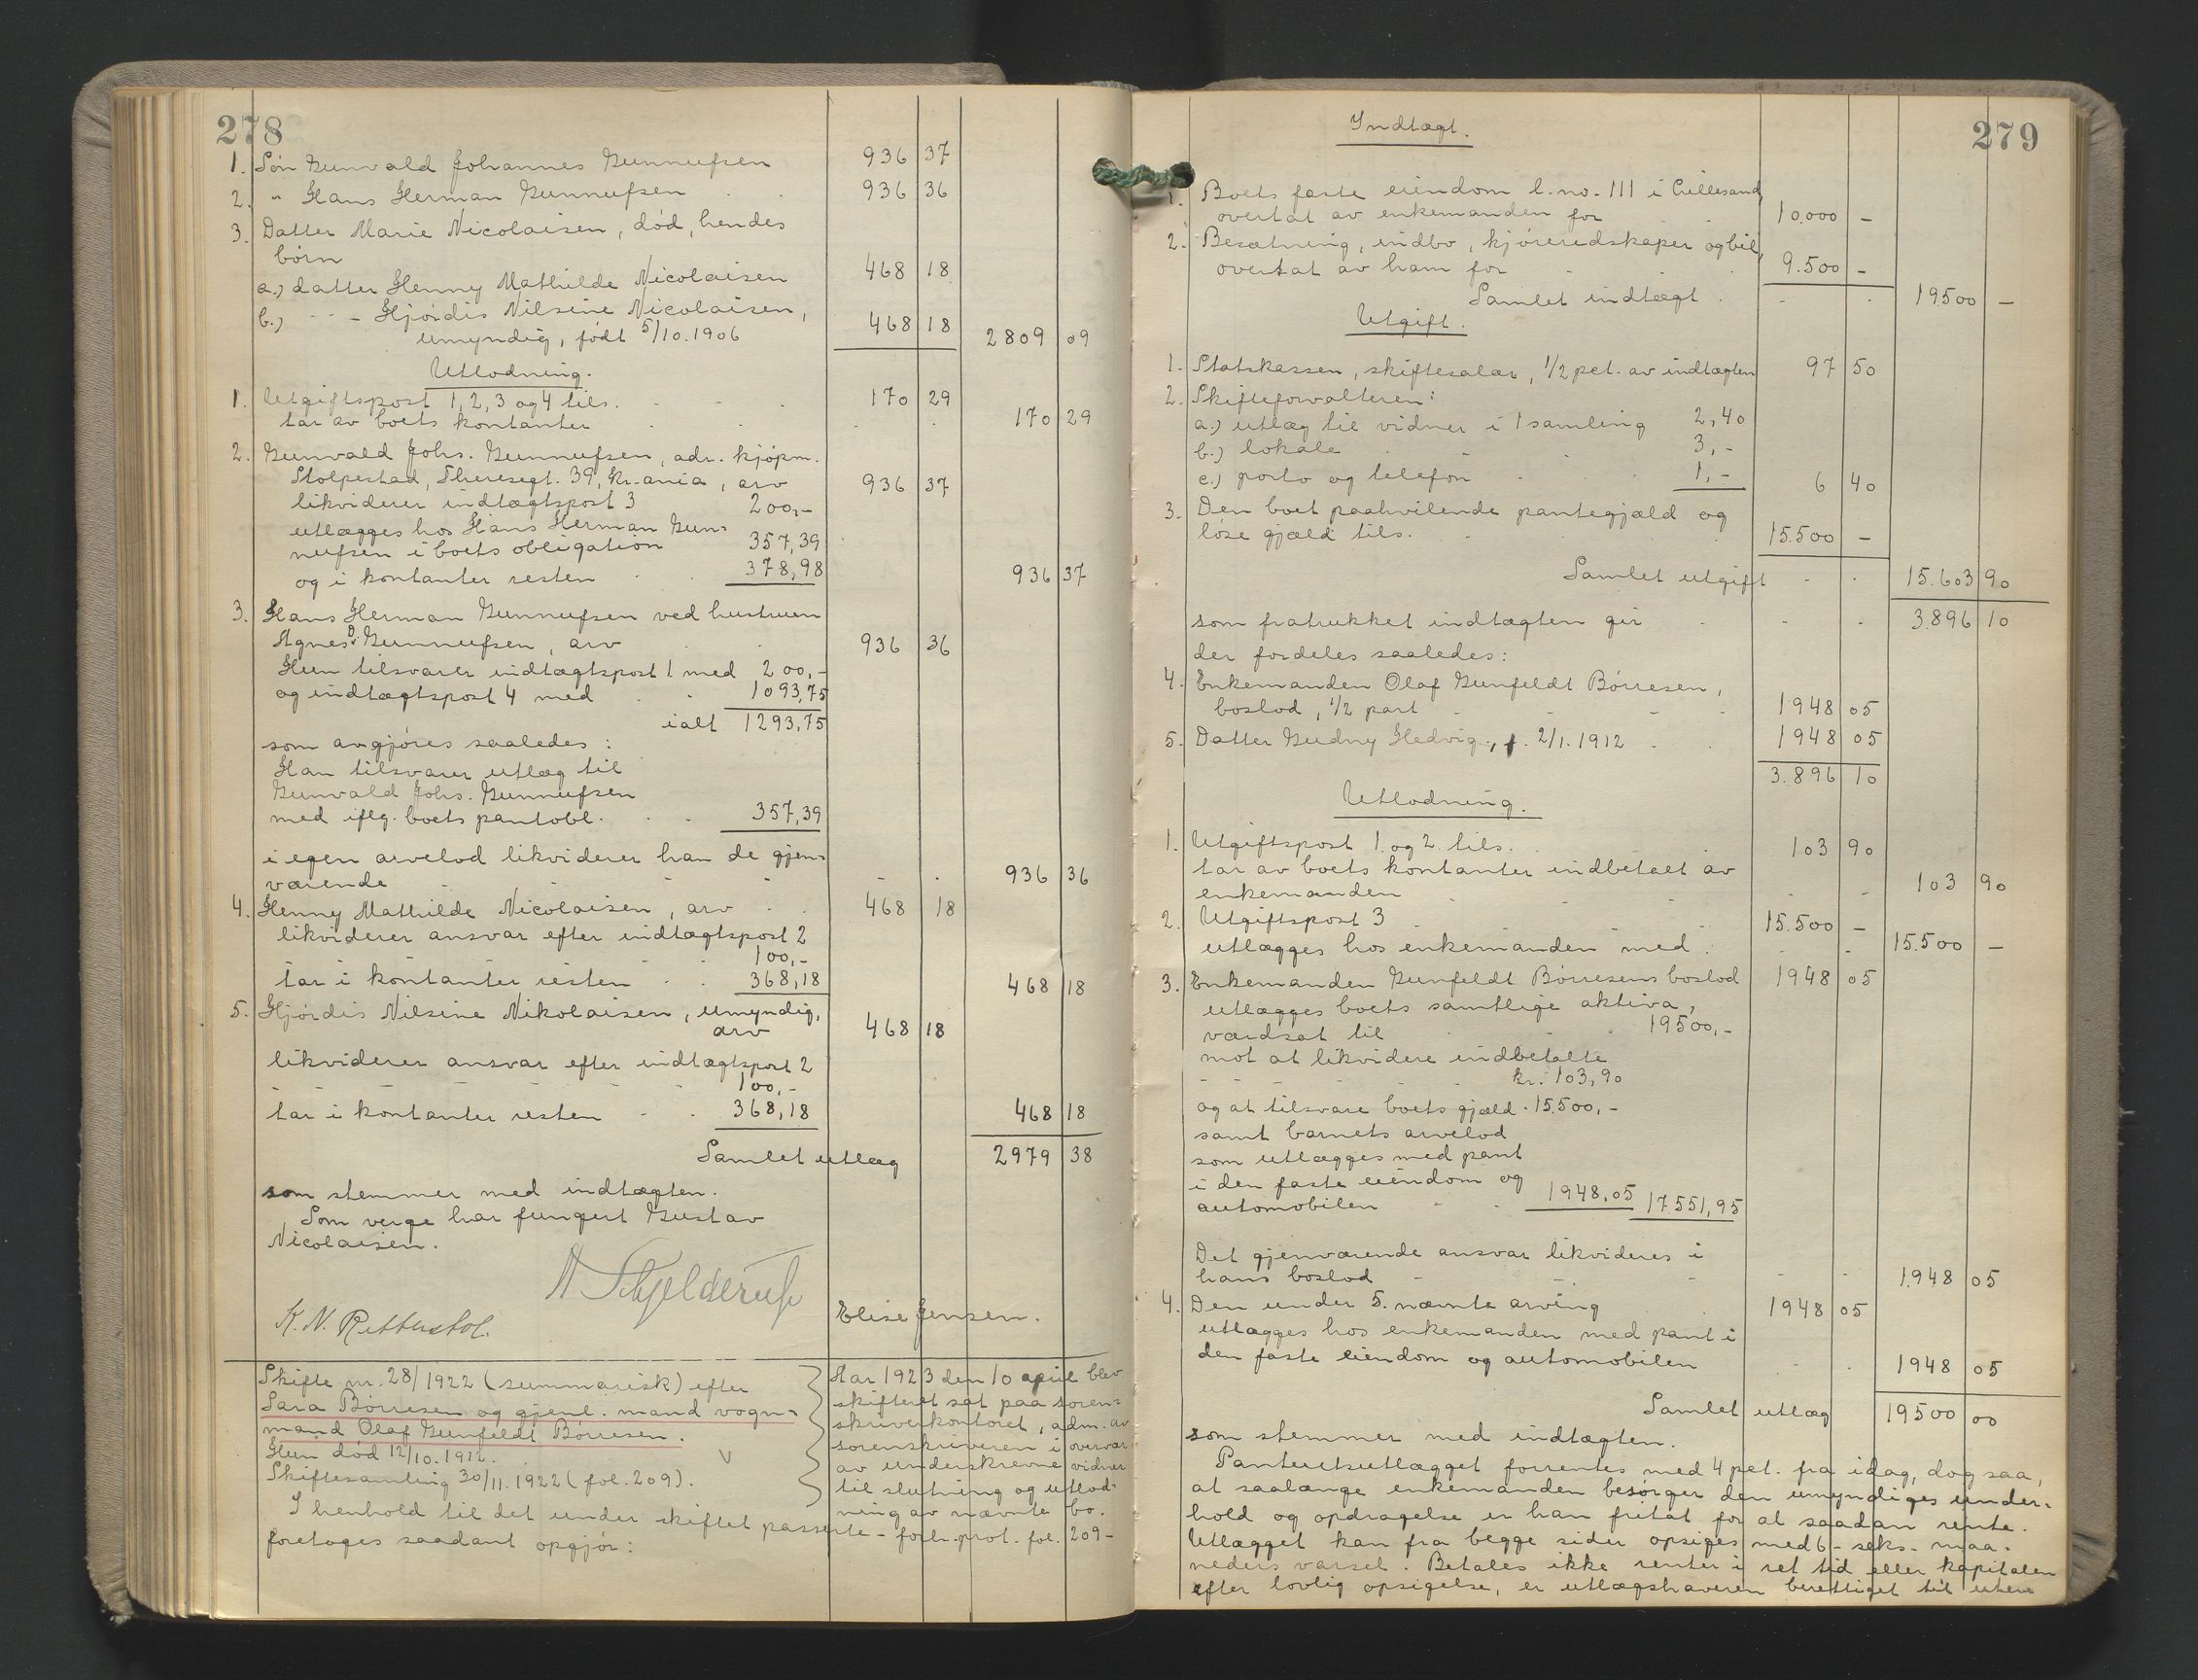 278
1. Søn Gunvald Johannes Gunnufsen 936 37
2. " Hans Herman Gunnufsen 936 36
3. Datter Marie Nicolaisen, død, hendes
børn
a.) datter Henny Mathilde Nicolaisen 468 18
b.) - - Hjørdis Nilsine Nicolaisen,
umyndig, født 5/10.1906 468 18 2809 09
Utlodning.
1. Utgiftspost 1, 2, 3 og 4 tils. 170 29
tar av boets kontanter 170 29
2. Gunvald Johs. Gunnufsen, adr. kjøpm.
Stolpestad, Theresegt. 39, Kr.ania, arv 936 37
likviderer indtægtspost 3 200,-
utlægges hos Hans Herman Gun-
nufsen i boets obligation 357,39
og i kontanter resten 378,98 936 37
3. Hans Herman Gunnufsen ved hustruen
Agnes D. Gunnufsen, arv 936 36
Hun tilsvarer indtægtspost 1 med 200,-
og indtægtspost 4 med 1093,75
ialt 1293,75
som avgjøres saaledes:
Han tilsvarer utlæg til
Gunvald Johs. Gunnufsen
med iflg. boets pantobl. 357,39
i egen arvelod likviderer han de gjen-
værende 936 36
4. Henny Mathilde Nicolaisen, arv 468 18
likviderer ansvar efter indtægtspost 2
100,-
tar i kontanter resten 368,18 468 18
5. Hjørdis Nilsine Nikolaisen, umyndig,
arv 468 18
likviderer ansvar efter indtægtspost 2
100,-
tar i kontanter resten 368,18 468 18
Samlet utlæg 2979 38
som stemmer med indtægten.
Som verge har fungert Gustav
Nicolaisen.
A Schjelderup
K. N. Elise Jensen.
Skifte nr. 28/1922 (summarisk) efter
Sara Børresen og gjenl. mand vogn-
mand Olaf Gunfeldt Børresen.
Hun død 12/10.1912.
Skiftesamling 30/11.1922 (fol. 209).
Aar 1923 den 10 april blev
skifteret sat paa soren-
skriverkontoret, adm. av
sorenskriveren i overvær
av underskrevne vidner
til slutning og utlod-
ning av nævnte bo.
I henhold til det under skiftet passerte - forh.prot. fol. 209 -
foretages saadant opgjør:
279
Indtægt.
1. Boets faste eiendom l.no. 111 i Lillesand,
overtat av enkemanden for 10.000 -
2. Besætning, indbo, kjøreredskaper og bil,
overtat av ham for 9.500 -
Samlet indtægt 19500 -
Utgift.
1. Statskassen, skiftesalær, 1/2 pct. av indtægten 97 50
2. Skifteforvalteren:
a.) utlæg til vidner i 1 samling 2,40
b.) lokale 3,-
c.) porto og telefon 1,- 6 40
3. Den boet paahvilende pantegjæld og
løse gjæld tils. 15.500 -
Samlet utgift 15.603 90
som fratrukket indtægten gir 3.896 10
der fordeles saaledes:
4. Enkemanden Olaf Gunfeldt Børresen,
boslod, 1/2 part 1948 05
5. Datter Gudny Hedvig, f. 2/1. 1912 1948 05
3.896 10
Utlodning.
1. Utgiftspost 1. og 2. tils. 103 90
tar av boets kontanter indbetalt av
enkemanden 103 90
2. Utgiftspost 3 15.500 -
utlægges hos enkemanden med 15.500 -
3. Enkemanden Gunfeldt Børresens boslod 1948 05
utlægges boets samtlige aktiva,
værdsat til 19500,-
mot at likvidere indbetalte
kr. 103,90
og at tilsvare boets gjæld 15.500,-
samt barnets arvelod
som utlægges med pant
i den faste eiendom og
automobilen 1948,05 17551,95
Det gjenværende ansvar likvideres i
hans boslod 1948 05
4. Den under 5. nævnte arving 1948 05
utlægges hos enkemanden med pant i
den faste eiendom og automobilen 1948 05
Samlet utlæg 19500 00
som stemmer med indtægten.
Panteutlægget forrentes med 4 pct. fra idag, dog saa,
at saalænge enkemanden besørger den umyndiges under-
hold og opdragelse er han fritat for at saadan rente.
Utlægget kan fra begge sider opsiges med 6 - seks - maa-
neders varsel. Betales ikke renter i ret tid eller kapitalen
efter lovlig opsigelse, er utlægshaveren berettiget til uten